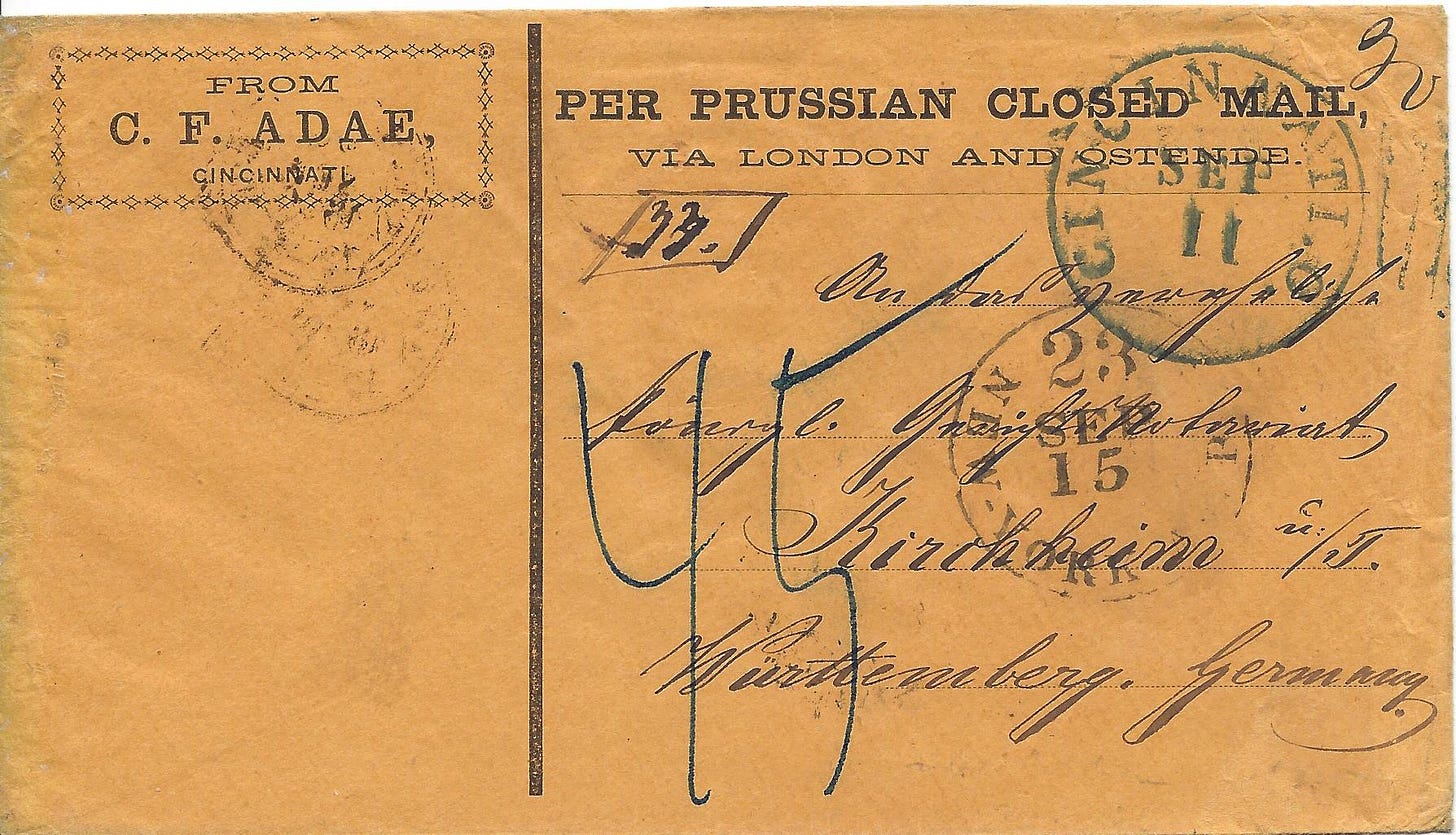 FROM
C. F. ADAE,
CINCINNATI.
PER PRUSSIAN CLOSED MAIL,
VIA LONDON AND OSTENDE.
CINCINNATI. O.
SEP
11
33.
An das verehrliche
23
SEP
15
Königl. Gerichts Notariat
45
Kirchheim u:/T.
Württemberg. Germany.